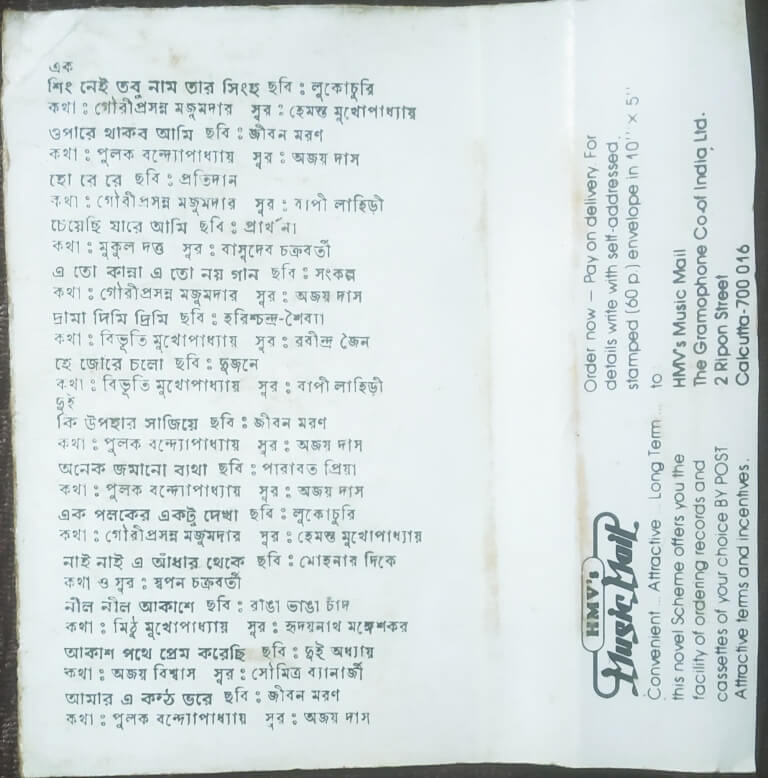 এক
শিং নেই তবু নাম তার সিংহ ছবি : লুকোচুরি
কথা : গৌরীপ্রসন্ন মজুমদার সুর : হেমন্ত মুখোপাধ্যায়
ওপারে থাকব আমি ছবি : জীবন মরণ
কথা : পুলক বন্দ্যোপাধ্যায় সুর : অজয় দাস
হো রে রে ছবি : প্রতিদান
কথা : গৌরীপ্রসন্ন মজুমদার সুর : বাপী লাহিড়ী
চেয়েছি যারে আমি ছবি : প্রার্থনা
কথা : মুকুল দত্ত সুর : বাসুদেব চক্রবর্তী
এ তো কান্না এ তো নয় গান ছবি : সংকল্প
কথা : গৌরীপ্রসন্ন মজুমদার সুর : অজয় দাস
দ্রামা দিমি দ্রিমি ছবি : হরিশ্চন্দ্র-শৈব্যা
কথা : বিভূতি মুখোপাধ্যায় সুর : রবীন্দ্র জৈন
হে জোরে চলো ছবি : দুজনে
কথা : বিভূতি মুখোপাধ্যায় সুর : বাপী লাহিড়ী
দুই
কি উপহার সাজিয়ে ছবি : জীবন মরণ
কথা : পুলক বন্দ্যোপাধ্যায় সুর : অজয় দাস
অনেক জমানো ব্যথা ছবি : পারাবত প্রিয়া
কথা : পুলক বন্দ্যোপাধ্যায় সুর : অজয় দাস
এক পলকের একটু দেখা ছবি : লুকোচুরি
কথা : গৌরীপ্রসন্ন মজুমদার সুর : হেমন্ত মুখোপাধ্যায়
নাই নাই এ আঁধার থেকে ছবি : মোহনার দিকে
কথা ও সুর : স্বপন চক্রবর্তী
নীল নীল আকাশে ছবি : রাঙা ভাঙা চাঁদ
কথা : মিঠু মুখোপাধ্যায় সুর : হৃদয়নাথ মঙ্গেশকর
আকাশ পথে প্রেম করেছি ছবি : দুই অধ্যায়
কথা : অজয় বিশ্বাস সুর : সৌমিত্র ব্যানার্জী
আমার এ কণ্ঠ ভরে ছবি : জীবন মরণ
কথা : পুলক বন্দ্যোপাধ্যায় সুর : অজয় দাস
HMV's
Music Mail
Convenient ... Attractive ... Long Term ...
this novel Scheme offers you the
facility of ordering records and
cassettes of your choice BY POST
Attractive terms and incentives.
Order now — Pay on delivery. For
details write with self-addressed,
stamped (60 p.) envelope in 10" × 5"
to
HMV's Music Mail
The Gramophone Co.of India Ltd.
2 Ripon Street
Calcutta-700 016